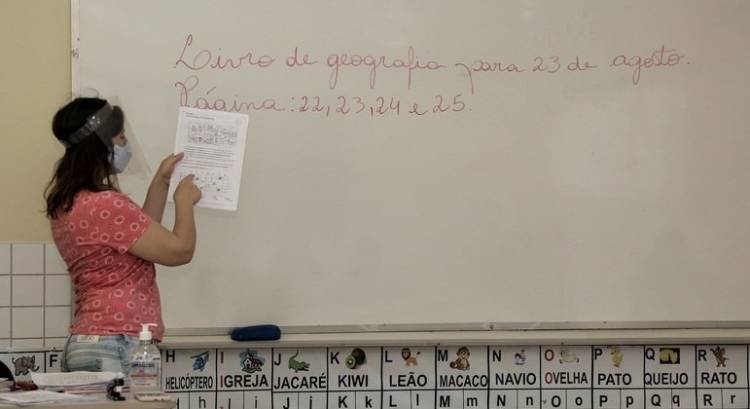 Livro de geografia para 23 de agosto.
Página: 22, 23, 24 e 25.
F H I J K L M N O P Q R
HELICÓPTERO IGREJA JACARÉ KIWI LEÃO MACACO NAVIO OVELHA PATO QUEIJO RATO
h I i J j K k L l M m N n O o P p Q q R r